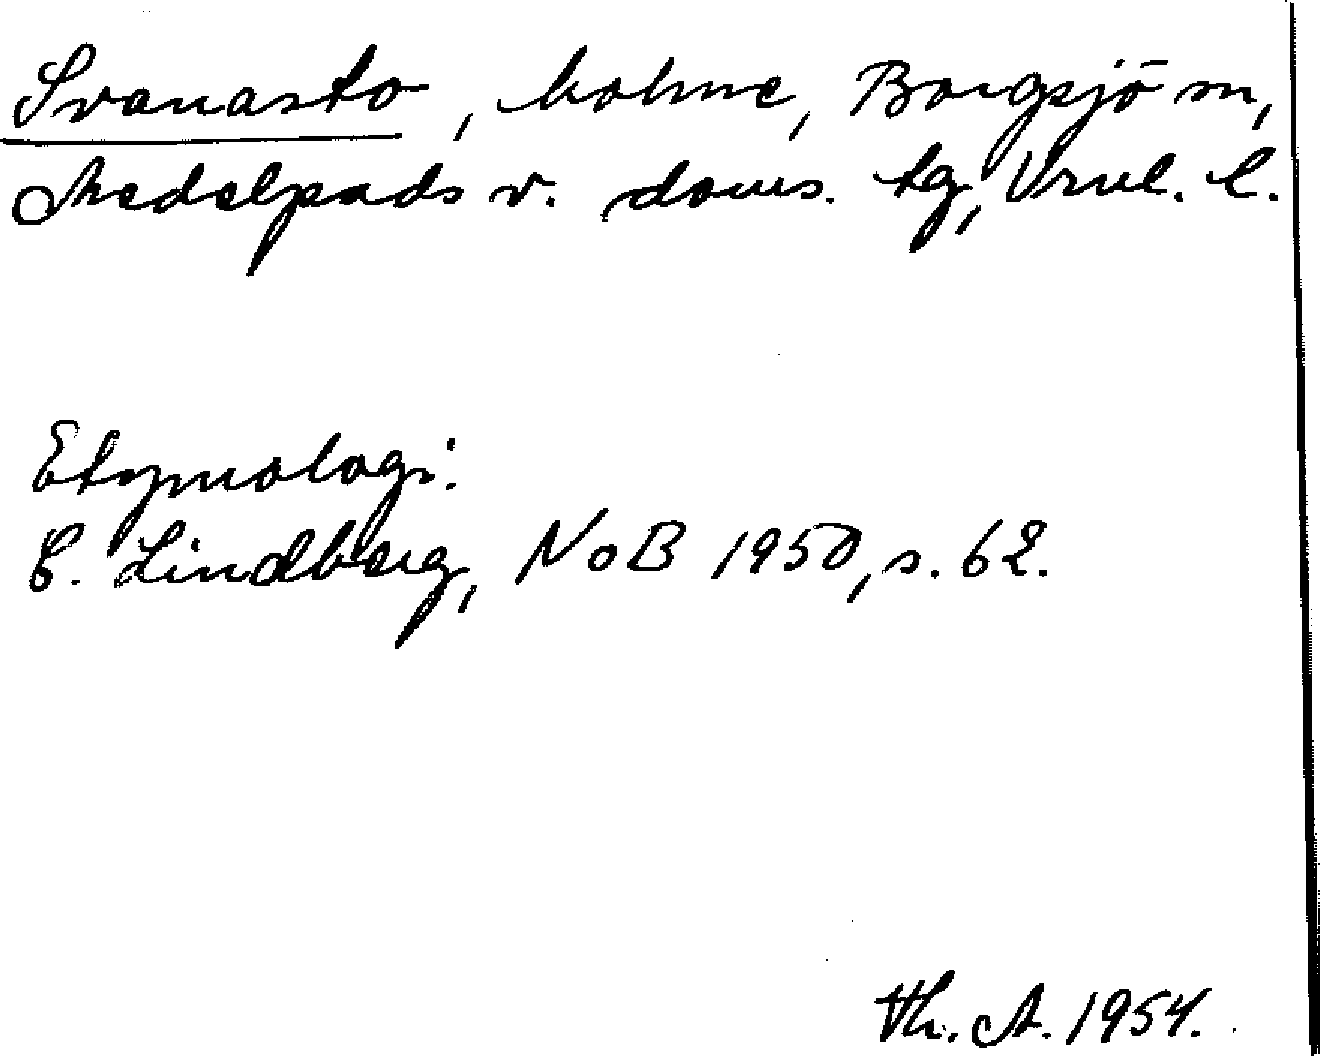 Svanasto, holme, Borgsjö sn,
Medelpads v. doms. tg, Vrnl. l.
Etymologi:
C. Lindberg, NoB 1950, s. 62.
Th. A. 1954.